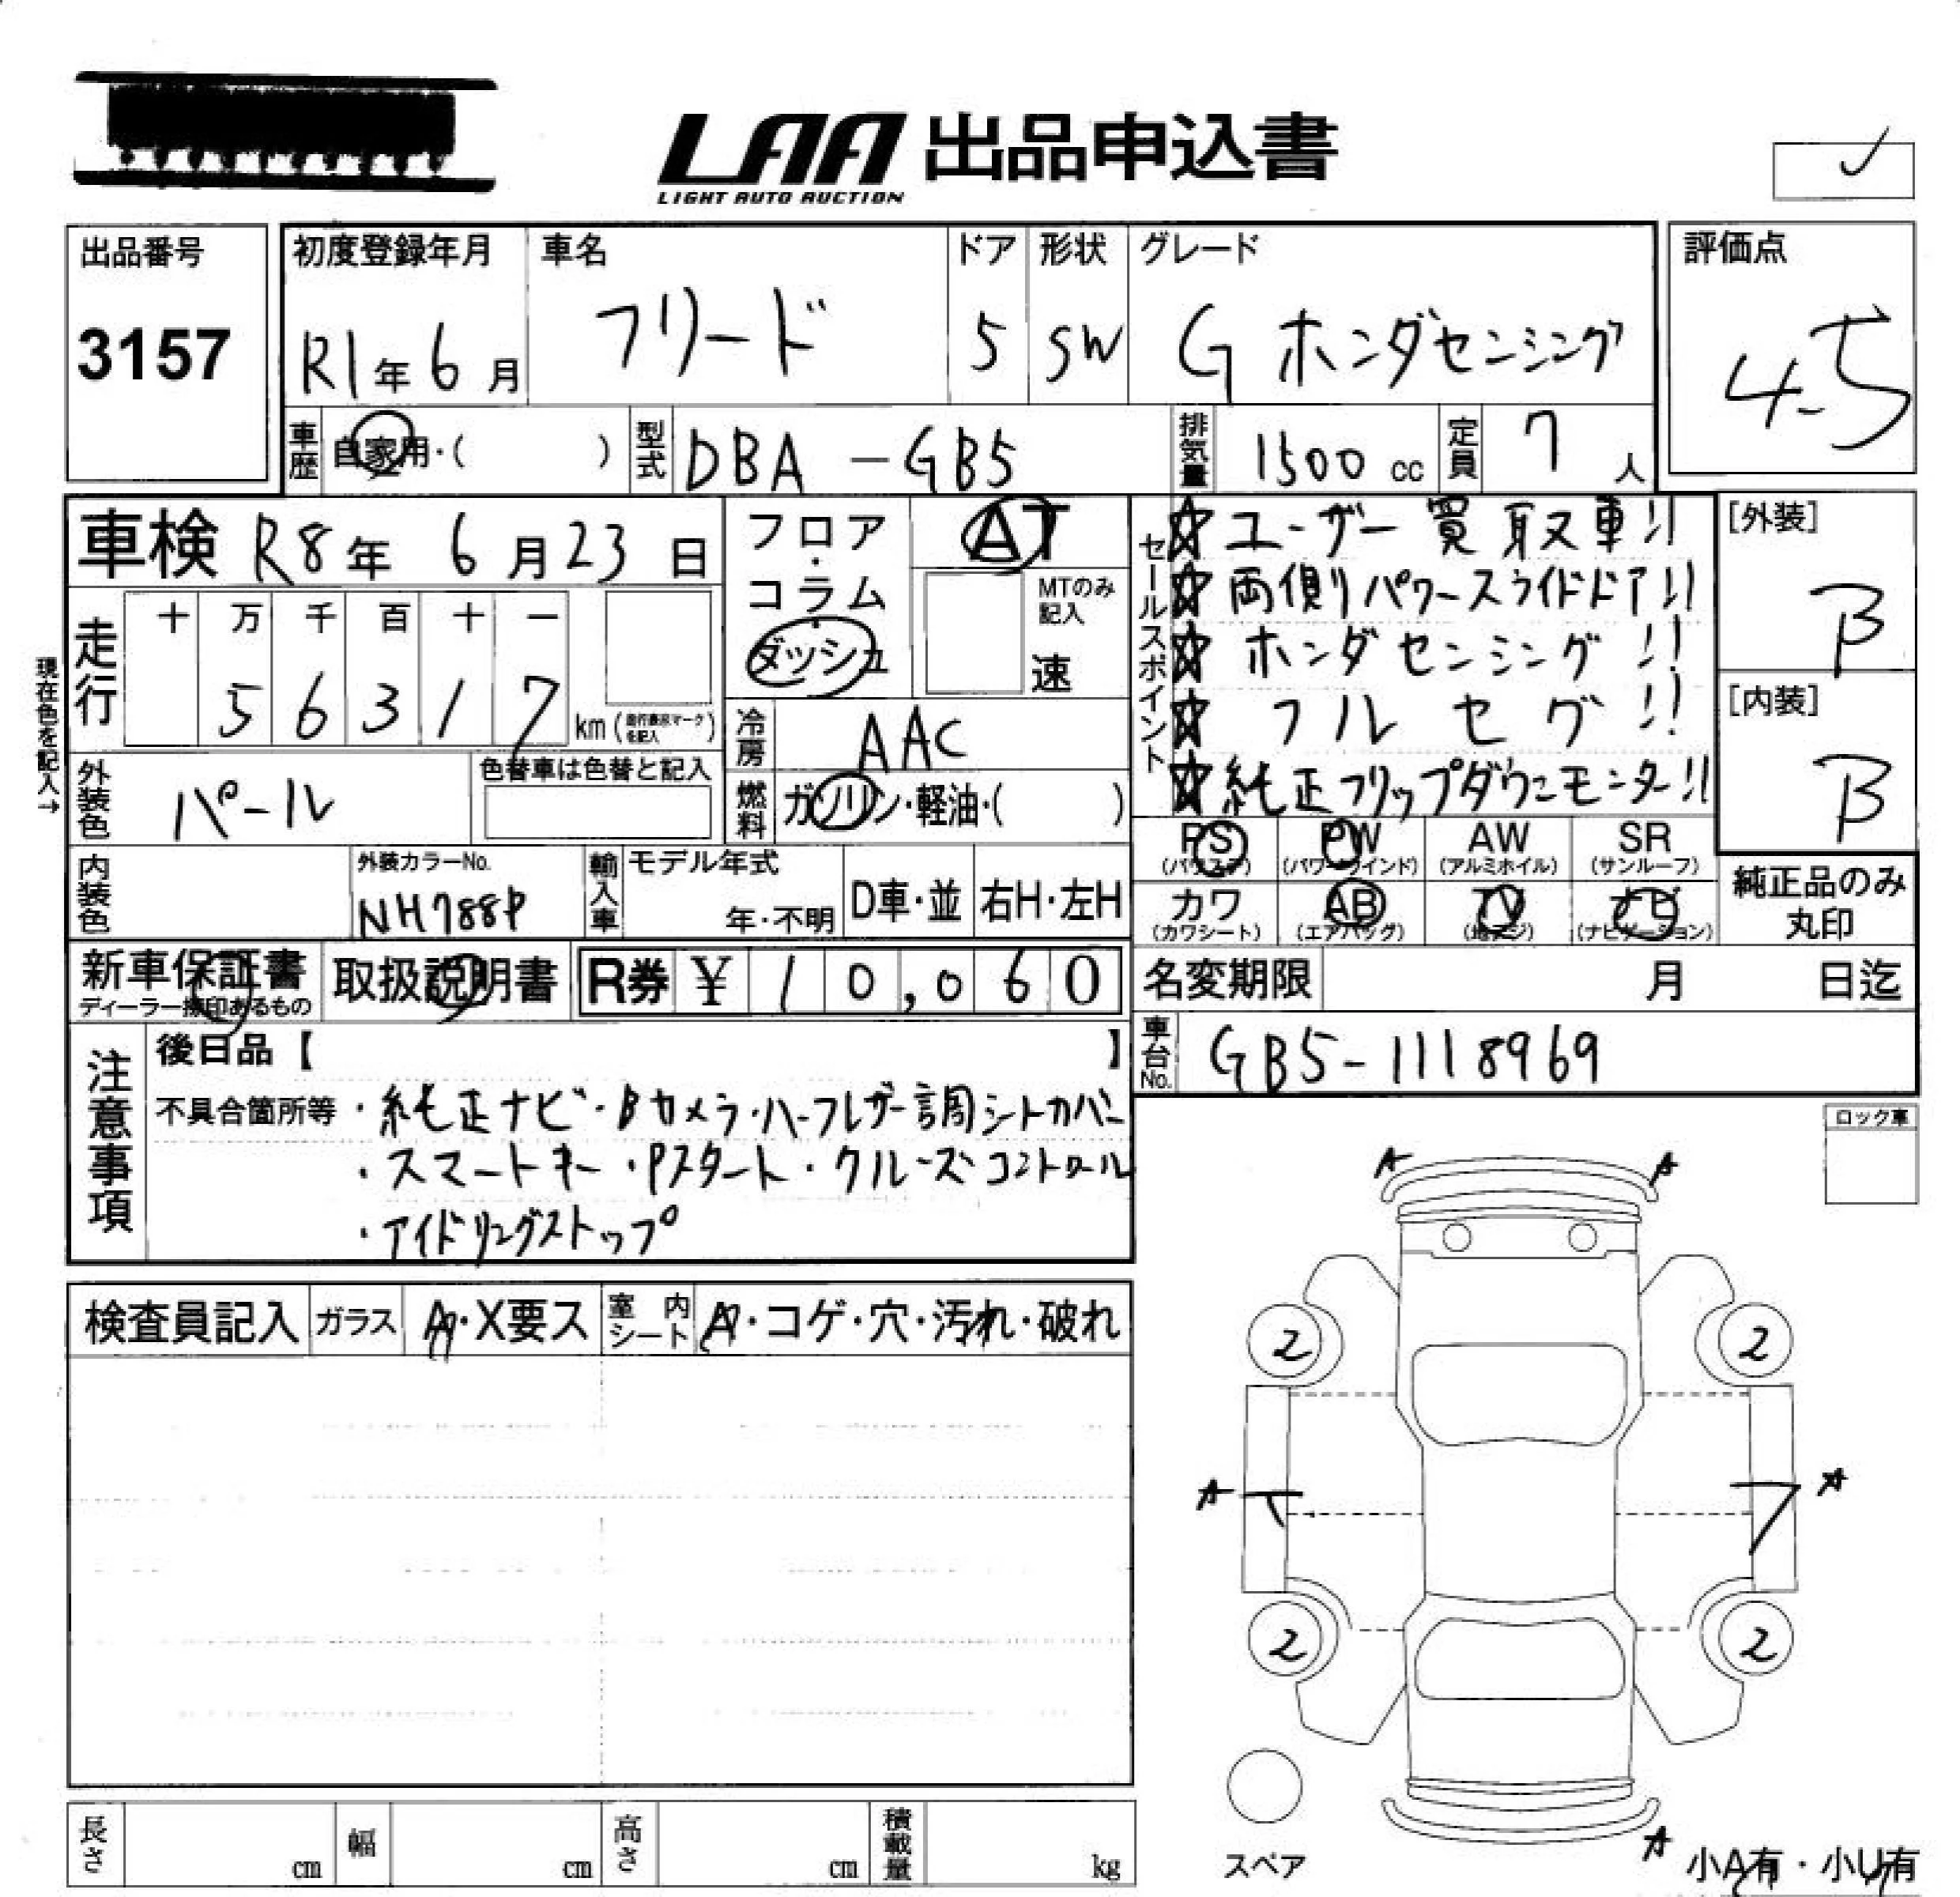 LAA 出品申込書
LIGHT AUTO AUCTION
出品番号
3157
初度登録年月
R1年6月
車名
フリード
ドア
5
形状
SW
グレード
G ホンダセンシング
評価点
4.5
車歴
自家用・( )
型式
DBA-GB5
排気量
1500 cc
定員
7人
車検 R8年 6月23日
現在色を記入→
走行
十 万 千 百 十 一
5 6 3 1 7
km (走行表示マークを記入)
フロア・コラム・ダッシュ
AT
MTのみ記入
速
冷房
AAC
外装色
パール
色替車は色替と記入
燃料
ガソリン・軽油・( )
内装色
外装カラーNo.
NH788P
輸入車
モデル年式
年・不明
D車・並
右H・左H
セールスポイント
☆ユーザー買取車!!
☆両側パワースライドドア!!
☆ホンダセンシング!!
☆フルセグ!!
☆純正フリップダウンモニター!!
[外装]
B
[内装]
B
PS (パワステ)
PW (パワーウインド)
AW (アルミホイル)
SR (サンルーフ)
カワ (カワシート)
AB (エアバッグ)
TV (地デジ)
ナビ (ナビゲーション)
純正品のみ
丸印
新車保証書
ディーラー捺印あるもの
取扱説明書
R券 ¥10,060
名変期限 月 日迄
車台No.
GB5-1118969
注意事項
後日品【 】
不具合箇所等 ・純正ナビ・Bカメラ・ハーフレザー調シートカバー
・スマートキー・Pスタート・クルーズコントロール
・アイドリングストップ
ロック車
検査員記入
ガラス
A・X要ス
室内シート
A・コゲ・穴・汚れ・破れ
A A
2 2
A A
2 2
スペア
A
小A有・小U有
長さ cm
幅 cm
高さ cm
積載量 kg